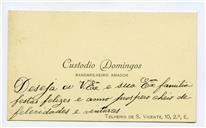 Custodio Domingos
BANDARILHEIRO AMADOR
Deseja a V. Exa e sua Exa familia
festas felizes e anno prospero cheio de
felicidades e venturas
TELHEIRO DE S. VICENTE, 10, 2.º, E.